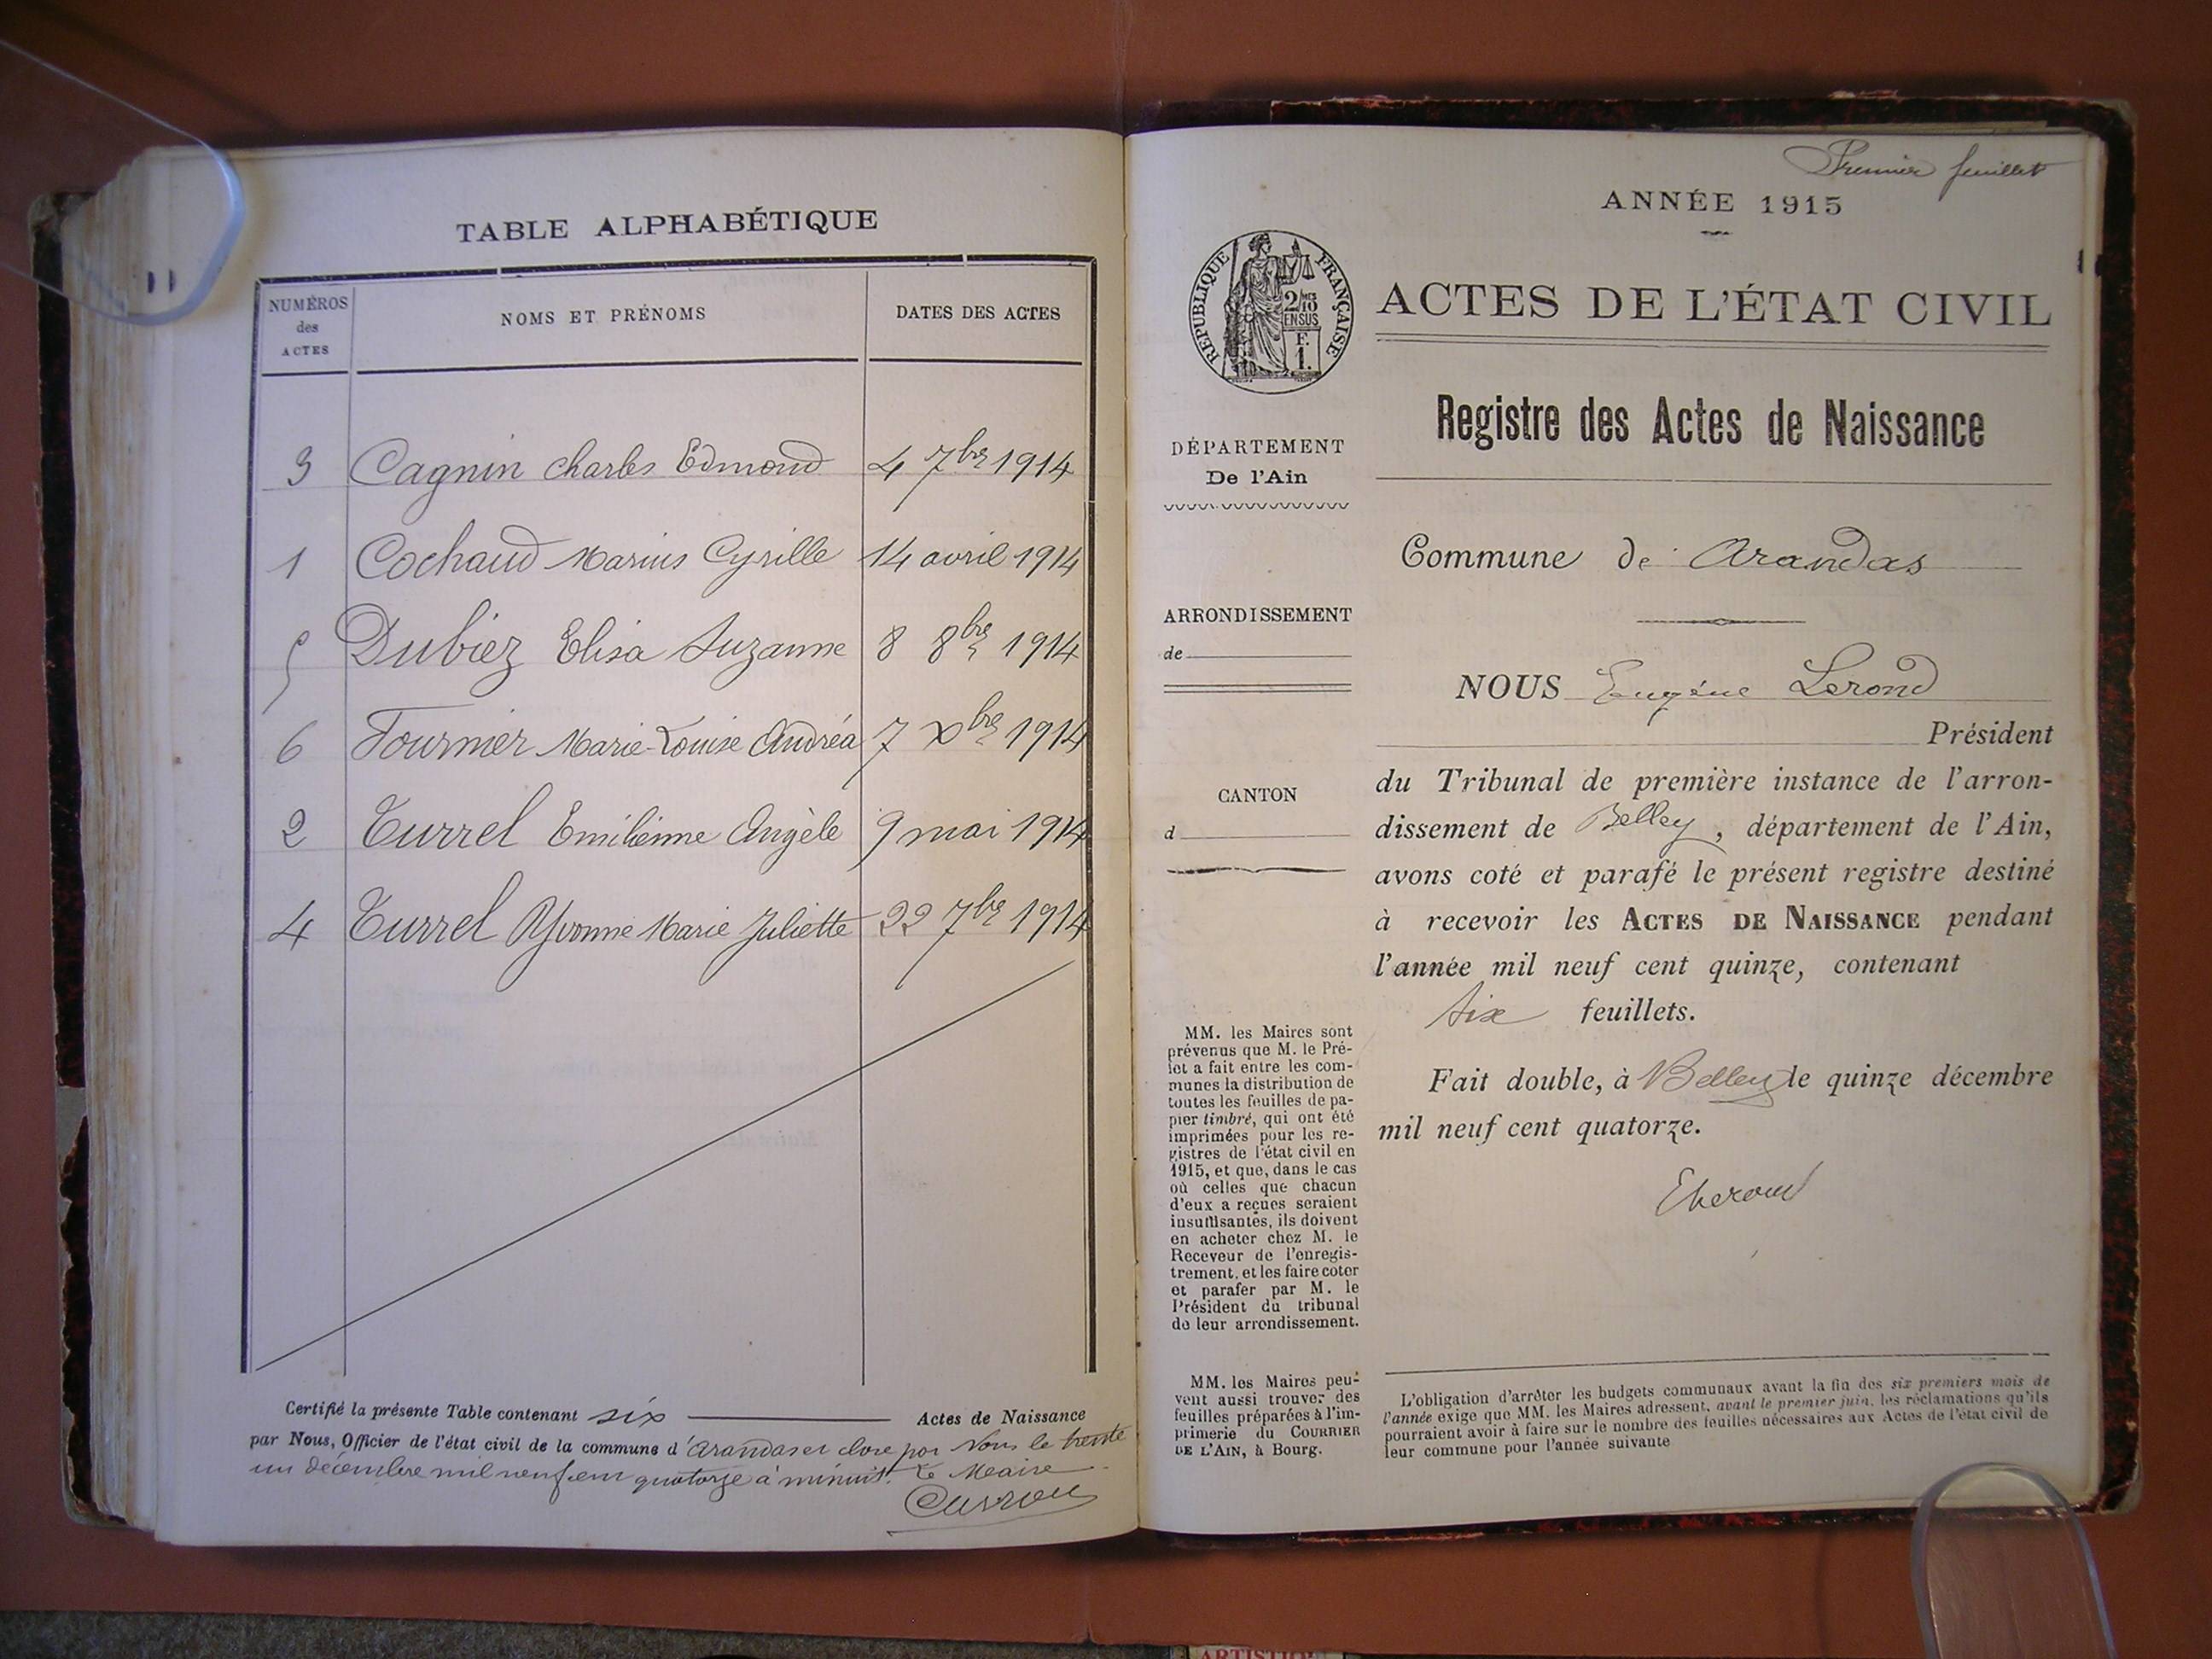 TABLE ALPHABÉTIQUE
NUMÉROS des ACTES
NOMS ET PRÉNOMS
DATES DES ACTES
3 Cagnin Charles Edmond 4 7bre 1914
1 Cochaud Marius Cyrille 14 avril 1914
5 Dubiez Elisa Suzanne 8 8bre 1914
6 Fournier Marie-Louise Andréa 7 Xbre 1914
2 Turrel Emilienne Angèle 9 mai 1914
4 Turrel Yvonne Marie Juliette 22 7bre 1914
Certifié la présente Table contenant six Actes de Naissance
par Nous, Officier de l'état civil de la commune d'Arandas et close par Nous le trente
un décembre mil neuf cent quatorze à minuit. Le Maire
Premier feuillet
ANNÉE 1915
RÉPUBLIQUE FRANÇAISE
2/10 EN SUS
F. 1.
ACTES DE L'ÉTAT CIVIL
Registre des Actes de Naissance
DÉPARTEMENT
De l'Ain
Commune de Arandas
ARRONDISSEMENT
de
NOUS Eugène Lerond
Président
CANTON
d
du Tribunal de première instance de l'arron-
dissement de Belley, département de l'Ain,
avons coté et parafé le présent registre destiné
à recevoir les ACTES DE NAISSANCE pendant
l'année mil neuf cent quinze, contenant
six feuillets.
Fait double, à Belley le quinze décembre
mil neuf cent quatorze.
ELerond
MM. les Maires sont
prévenus que M. le Pré-
fet a fait entre les com-
munes la distribution de
toutes les feuilles de pa-
pier timbré, qui ont été
imprimées pour les re-
gistres de l'état civil en
1915, et que, dans le cas
où celles que chacun
d'eux a reçues seraient
insuffisantes, ils doivent
en acheter chez M. le
Receveur de l'enregis-
trement, et les faire coter
et parafer par M. le
Président du tribunal
de leur arrondissement.
MM. les Maires peu-
vent aussi trouver des
feuilles préparées à l'im-
primerie du COURRIER
DE L'AIN, à Bourg.
L'obligation d'arrêter les budgets communaux avant la fin des six premiers mois de
l'année exige que MM. les Maires adressent, avant le premier juin, les réclamations qu'ils
pourraient avoir à faire sur le nombre des feuilles nécessaires aux Actes de l'état civil de
leur commune pour l'année suivante